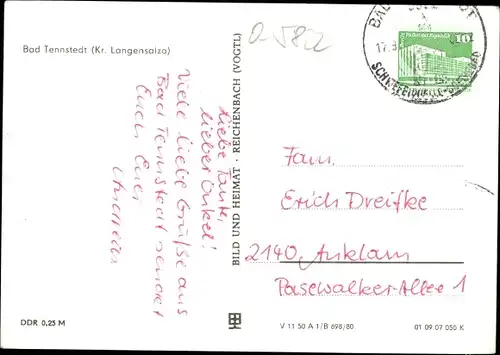 Bad Tennstedt (Kr. Langensalza)
Liebe Tante,
lieber Onkel!
Viele liebe Grüße aus
Bad Tennstedt sendet
Euch Euer
BILD UND HEIMAT · REICHENBACH (VOGTL)
10
17.8
Fam.
Erich Dreifke
2140 Anklam
Pasewalker-Allee 1
DDR 0,25 M
V 11 50 A 1/B 698/80
01 09 07 050 K